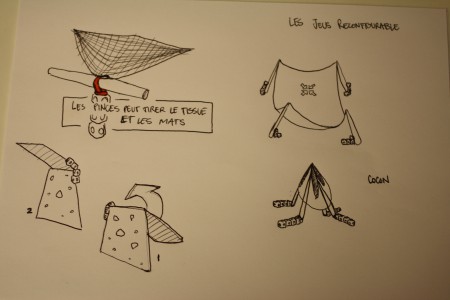 LES JOLIS RECONFIGURABLE
LES PINCES PEUT TIRER LE TISSUE
ET LES MATS
COCON
2
1